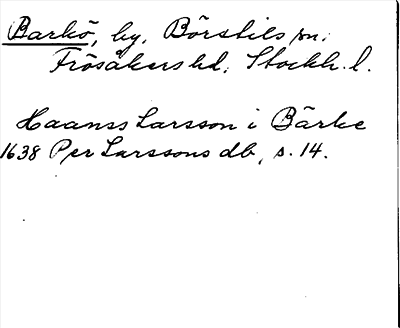 Barkö, by, Börstils sn.
Frösåkers hd. Stockh. l.
Haanss Larsson i Bärke
1638 Per Larssons db, s. 14.